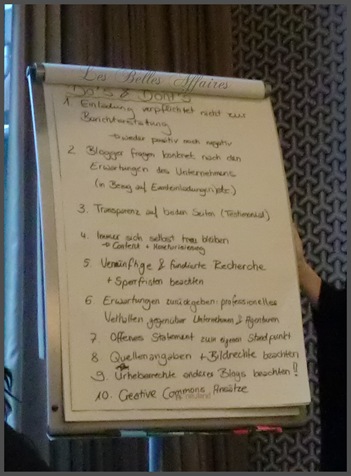 Les Belles Affaires
Do's & Dont's
1. Einladung verpflichtet nicht zur
Berichterstattung
→ weder positiv noch negativ
2. Blogger fragen konkret nach den
Erwartungen des Unternehmens
(in Bezug auf Eventeinladungen etc)
3. Transparenz auf beiden Seiten (Testimonial)
4. Immer sich selbst treu bleiben
→ Content + Monetarisierung
5. Vernünftige & fundierte Recherche
+ Sperrfristen beachten
6. Erwartungen zurückgeben: professionelles
Verhalten gegenüber Unternehmen & Agenturen
7. Offenes Statement zum eigenen Standpunkt
8. Quellenangaben + Bildrechte beachten
9. Urheberrechte anderer Blogs beachten!
10. Creative Commons Ansätze